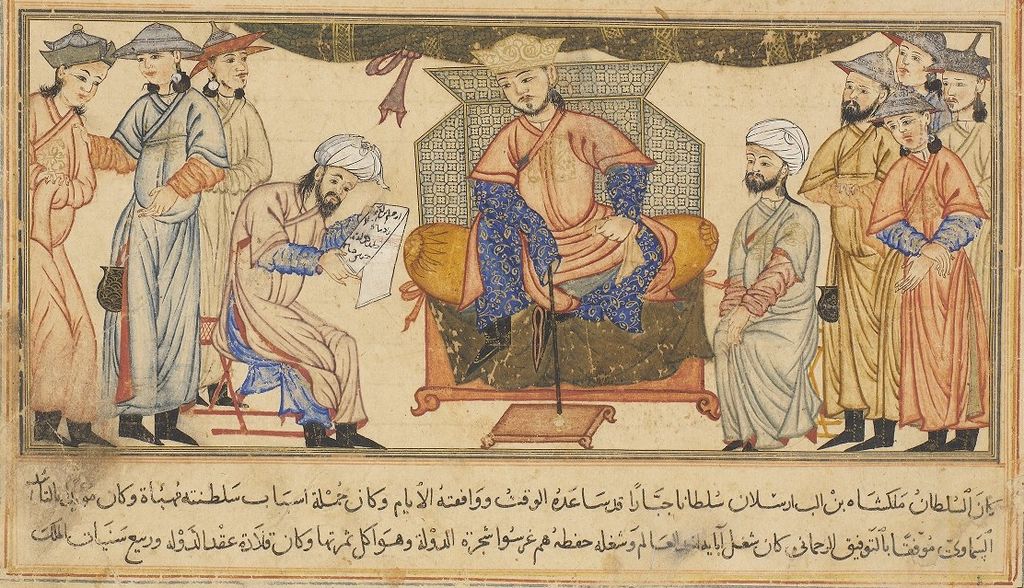 كان السلطان ملكشاه بن الب ارسلان سلطانا جبارا قد ساعده الوقت ووافقته الايام وكان جملة اسباب سلطنته مهيأة وكان
السماوى موفقا بالتوفيق الرحمانى كان شغل آبايه العالم وشغله حفظه هم غرسوا شجرة الدولة وهو اكل ثمرتها وكان قلادة عقد الدولة وربيع سنيات الملك